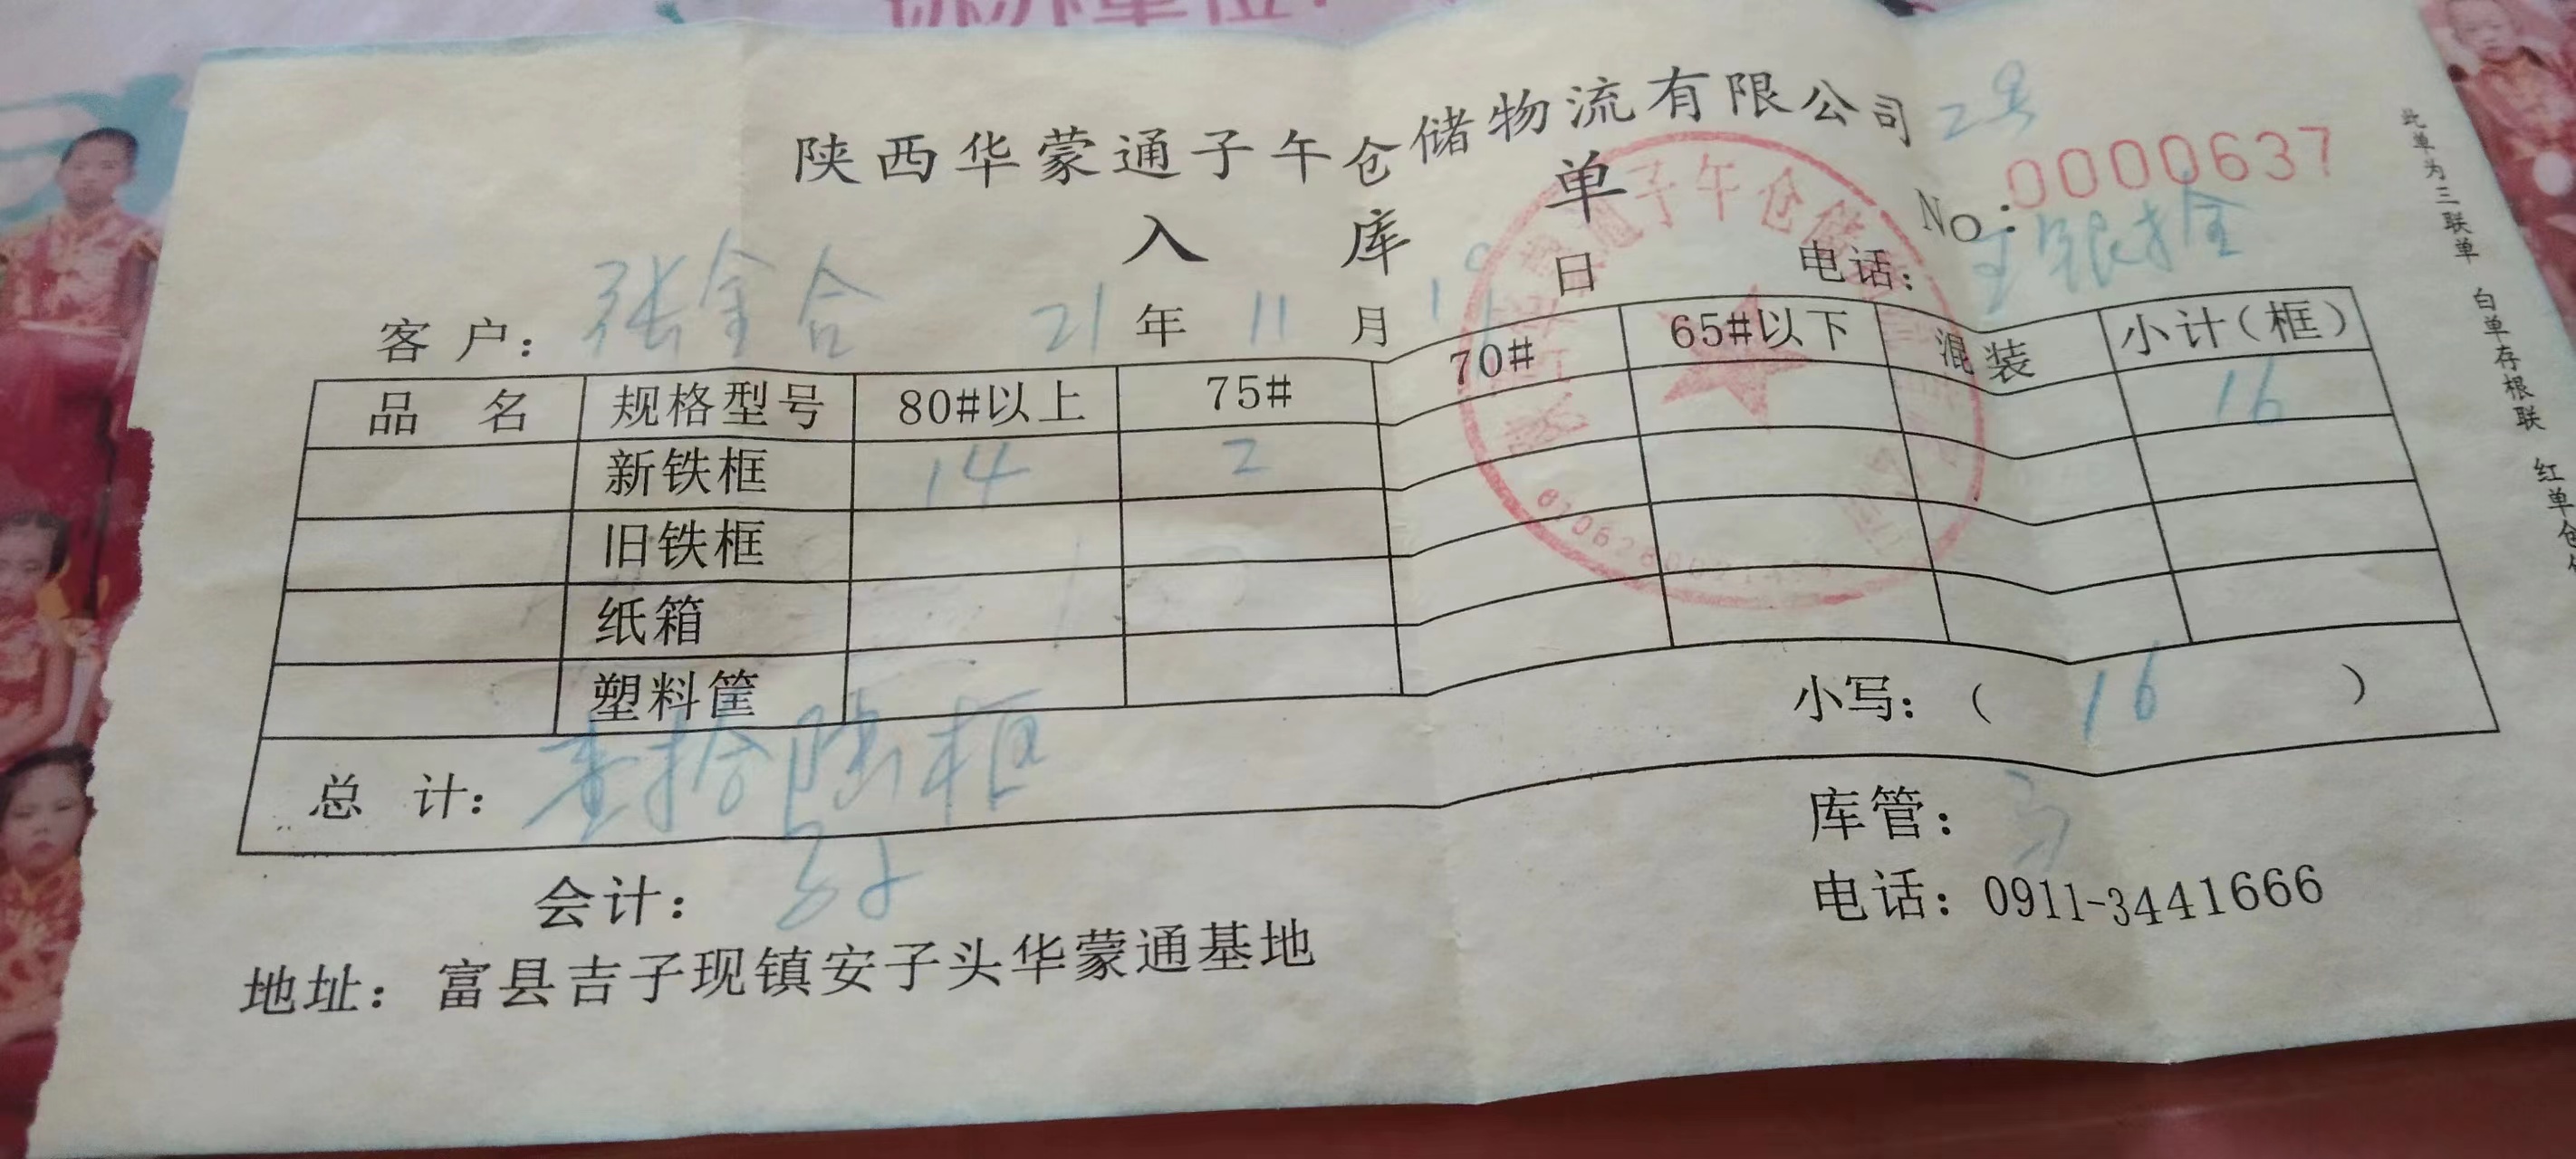 陕西华蒙通子午仓储物流有限公司 2号
入库单
No:0000637
客户: 张金合 21年11月19日 电话:
品名 规格型号 80#以上 75# 70# 65#以下 混装 小计(框)
新铁框 14 2 16
旧铁框
纸箱
塑料筐
总计: 壹拾陆框 小写:( 16 )
会计: 库管:
地址: 富县吉子现镇安子头华蒙通基地 电话: 0911-3441666
此单为三联单 白单存根联 红单仓
子午仓储